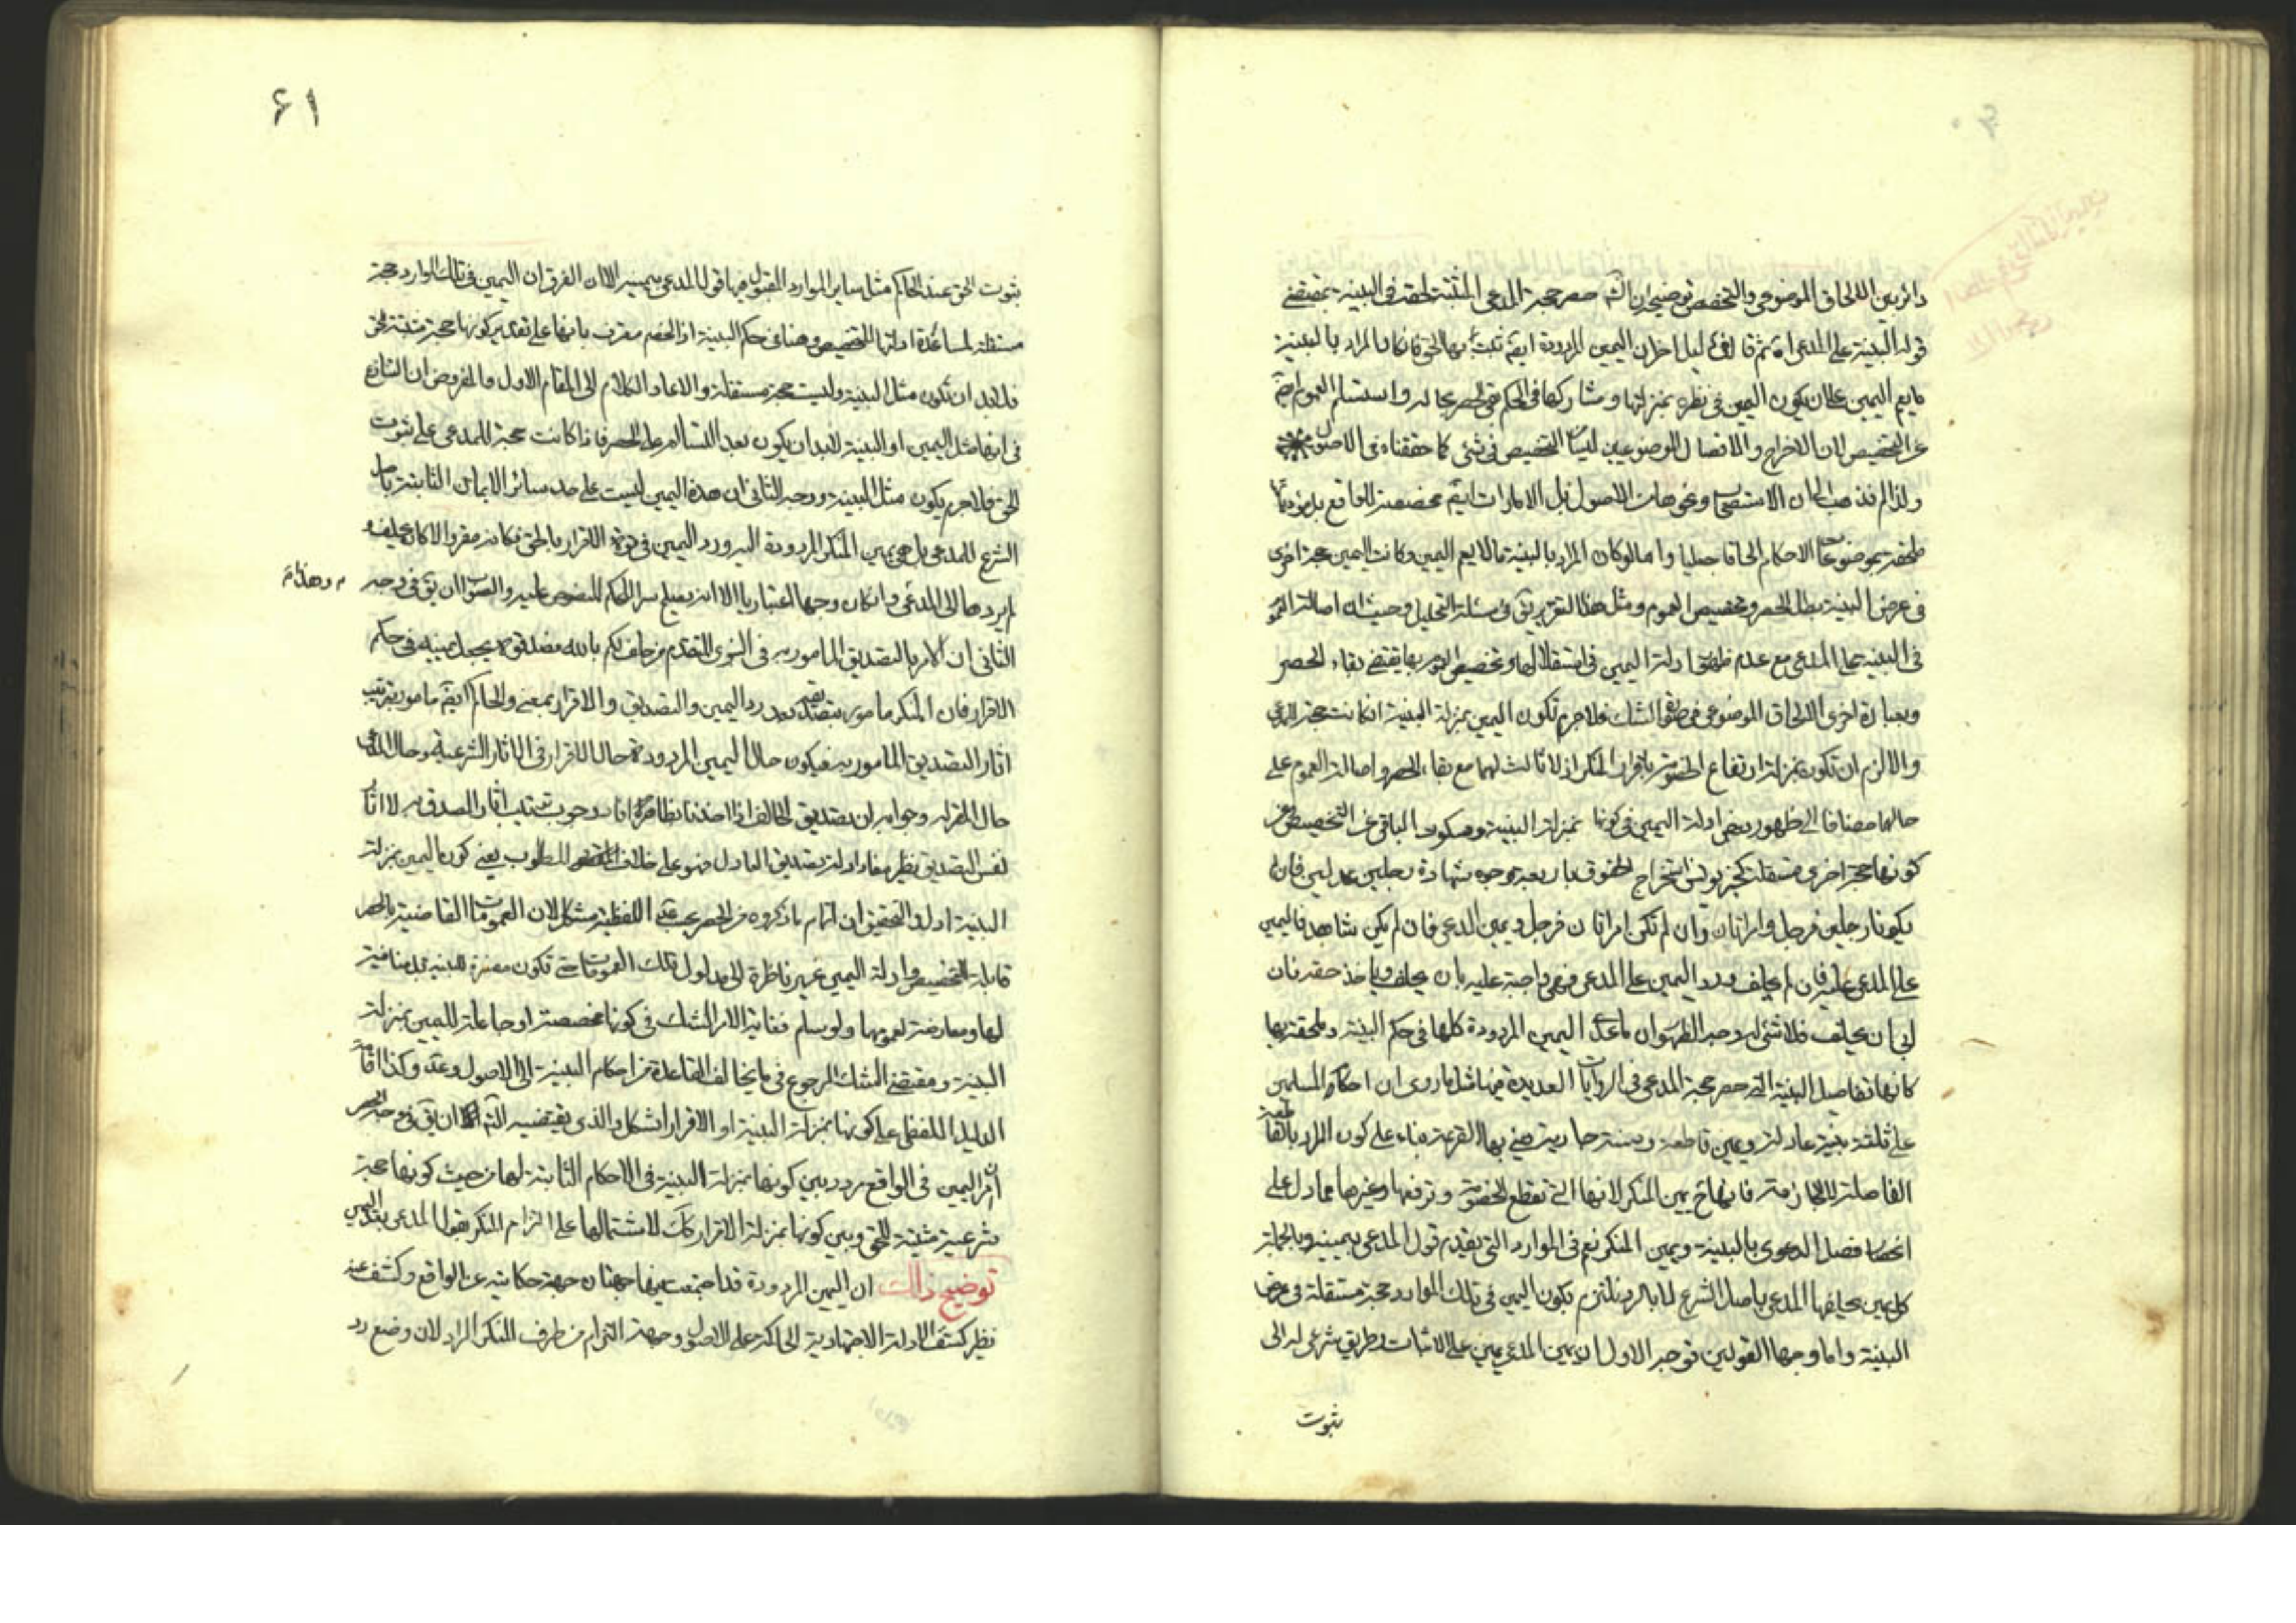 دائر بين الالحاق الموضوعي والتخصيص توضيحه ان الش حصر حجة المدعي المثبتة لحقه في البينة بمقتضى
قوله البينة على المدعي ثم قال في دليل اخر ان اليمين المردودة ايضا تثبت بها الحق فان كان المراد بالبينة
ما يعم اليمين على ان يكون اليمين في نظره بمنزلتها ومشاركها في الحكم بقي الحصر بحاله واستسلم العموم ايضا
عن التخصيص لان الاخراج والانفصال الموضوعيين ليسا التخصيص في شئ كما حققناه في الاصول
ولذا لم نذهب الى ان الاستصحاب ونحوها من الاصول بل الامارات ايضا مخصصة للواقع بل مؤدياتها
ملحقة بموضوعات الاحكام الحاقا جعليا واما لو كان المراد بالبينة ما لا يعم اليمين وكانت اليمين حجة اخرى
في عرض البينة بطل الحصر وتخصيص العموم ومثل هذا التقرير يأتي في مسئلة التحليل وحيث ان اصالة العموم
في البينة على المدعي مع عدم ظهور ادلة اليمين في استقلالها وتخصيص العموم بها يقتضي بقاء الحصر
وبعبارة اخرى الالحاق الموضوعي في صورة الشك فلا جرم تكون اليمين بمنزلة البينة ان كانت حجة للمدعي
والا لزم ان تكون بمنزلة ارتفاع الخصومة باقرار المنكر اذ لا ثالث لهما مع بقاء الحصر واصالة العموم على
حالهما مضافا الى ظهور بعض ادلة اليمين في كونها بمنزلة البينة وسكوت الباقي عن التخصيص وعن
كونها حجة اخرى مستقلة كخبر يونس استخراج الحقوق باربعة وجوه شهادة رجلين عدلين فان لم
يكونا رجلين فرجل وامراتان وان لم تكن امراتان فرجل ويمين المدعي فان لم يكن شاهد فاليمين
على المدعى عليه فان لم يحلف ورد اليمين على المدعي فهي واجبة عليه بان يحلف وياخذ حقه فان
ابى ان يحلف فلا شئ له وجه الظهور ان ما عدا اليمين المردودة كلها في حكم البينة وملحقة بها
كانها تفاصيل البينة التي حصر حجة المدعي في الروايات العديدة فيها مثل ما روى ان احكام المسلمين
على ثلثة بينة عادلة ويمين قاطعة وسنة جارية مضى بها القرعة بناء على كون المراد بالقاطعة
الفاصلة لا الجازمة فانها ح يمين المنكر لانها التي تقطع الخصومة وترفعها وغيرها مما دل على
انحصار فصل الدعوى بالبينة ويمين المنكر نعم في الموارد التي يقدم قول المدعي بيمينه وبالجملة
كل يمين يحلفها المدعي باصل الشرع لا بالرد نلتزم بكون اليمين في تلك الموارد حجة مستقلة في عرض
البينة واما وجها القولين فوجه الاول ان يمين المدعي يمين على الاثبات وطريق شرعي له الى
ثبوت
۶۱
ثبوت الحق عند الحاكم مثل ساير الموارد المقبول فيها قول المدعي بيمينه الا ان الفرق ان اليمين في تلك الموارد حجة
مستقلة لمساعدة ادلتها للتخصيص وهنا في حكم البينة اذ الخصم معترف بانها على تقدير كونها حجة مثبتة للحق
فلا بد ان تكون مثل البينة وليست حجة مستقلة والا عاد الكلام الى المقام الاول والمفروض ان التنازع
في انها مثل اليمين او البينة لا بد ان يكون بعد التسالم على الحصر فاذا كانت حجة للمدعي على ثبوت
الحق فلا جرم يكون مثل البينة ووجه الثاني ان هذه اليمين ليست على حد سائر الايمان الثابتة باصل
الشرع للمدعي بل هي يمين المنكر المردودة اليه ورد اليمين في قوة الاقرار بالحق فكانه مقر والا كان يحلف و
لم يردها الى المدعي وان كان وجها اعتباريا الا انه يصلح سرا للحكم المنصوص عليه والصواب ان يق في وجه
م وهذا م
الثاني ان الامر بالتصديق المامور به في النبوي المتقدم من حلف لكم بالله فصدقوه يجعل يمينه في حكم
الاقرار فان المنكر مامور بتصديقه بعد رد اليمين والتصديق والاقرار بمعنى والحاكم ايضا مامور بترتيب
اثار التصديق المامور به فيكون حال اليمين المردودة حال الاقرار في الاثار الشرعية وحال المدعي
حال المقر له وجوابه ان تصديق الحالف اذا اخذنا بظاهره افاد وجوب ترتيب اثار الصدق لا اثار
نفس التصديق نظير مفاد ادلة تصديق العادل فهو على خلاف المطلوب يعني كون اليمين بمنزلة
البينة ادل والتحقيق ان اتمام ما ذكروه من الحصر بحسب الادلة اللفظية مشكل لان العمومات القاضية بالحصر
قابلة للتخصيص وادلة اليمين غير ناظرة الى مدلول تلك العمومات حتى تكون مفسرة للبينة بل منافية
لها ومعارضة لعمومها ولو سلم فغاية الامر الشك في كونها مخصصة او جاعلة لليمين بمنزلة
البينة ومقتضى الشك الرجوع في ما يخالف القاعدة من احكام البينة الى الاصول وعدمه وكذا اقامة
الدليل اللفظي على كونها بمنزلة البينة او الاقرار اشكل والذي يقتضيه النظر ان يق في وجه الحصر
ان امر اليمين في الواقع مردد بين كونها بمنزلة البينة في الاحكام الثابتة لها من حيث كونها حجة
شرعية مثبتة للحق وبين كونها بمنزلة الاقرار كك لاشتمالها على التزام المنكر بقول المدعي بعد اليمين
توضيح ذلك ان اليمين المردودة قد اجتمعت فيها جهتان جهة حكاية عن الواقع وكشف عنه
نظير كشف الادلة الاجتهادية الحاكمة على الاصول وجهة التزام من طرف المنكر الراد لان وضع رد